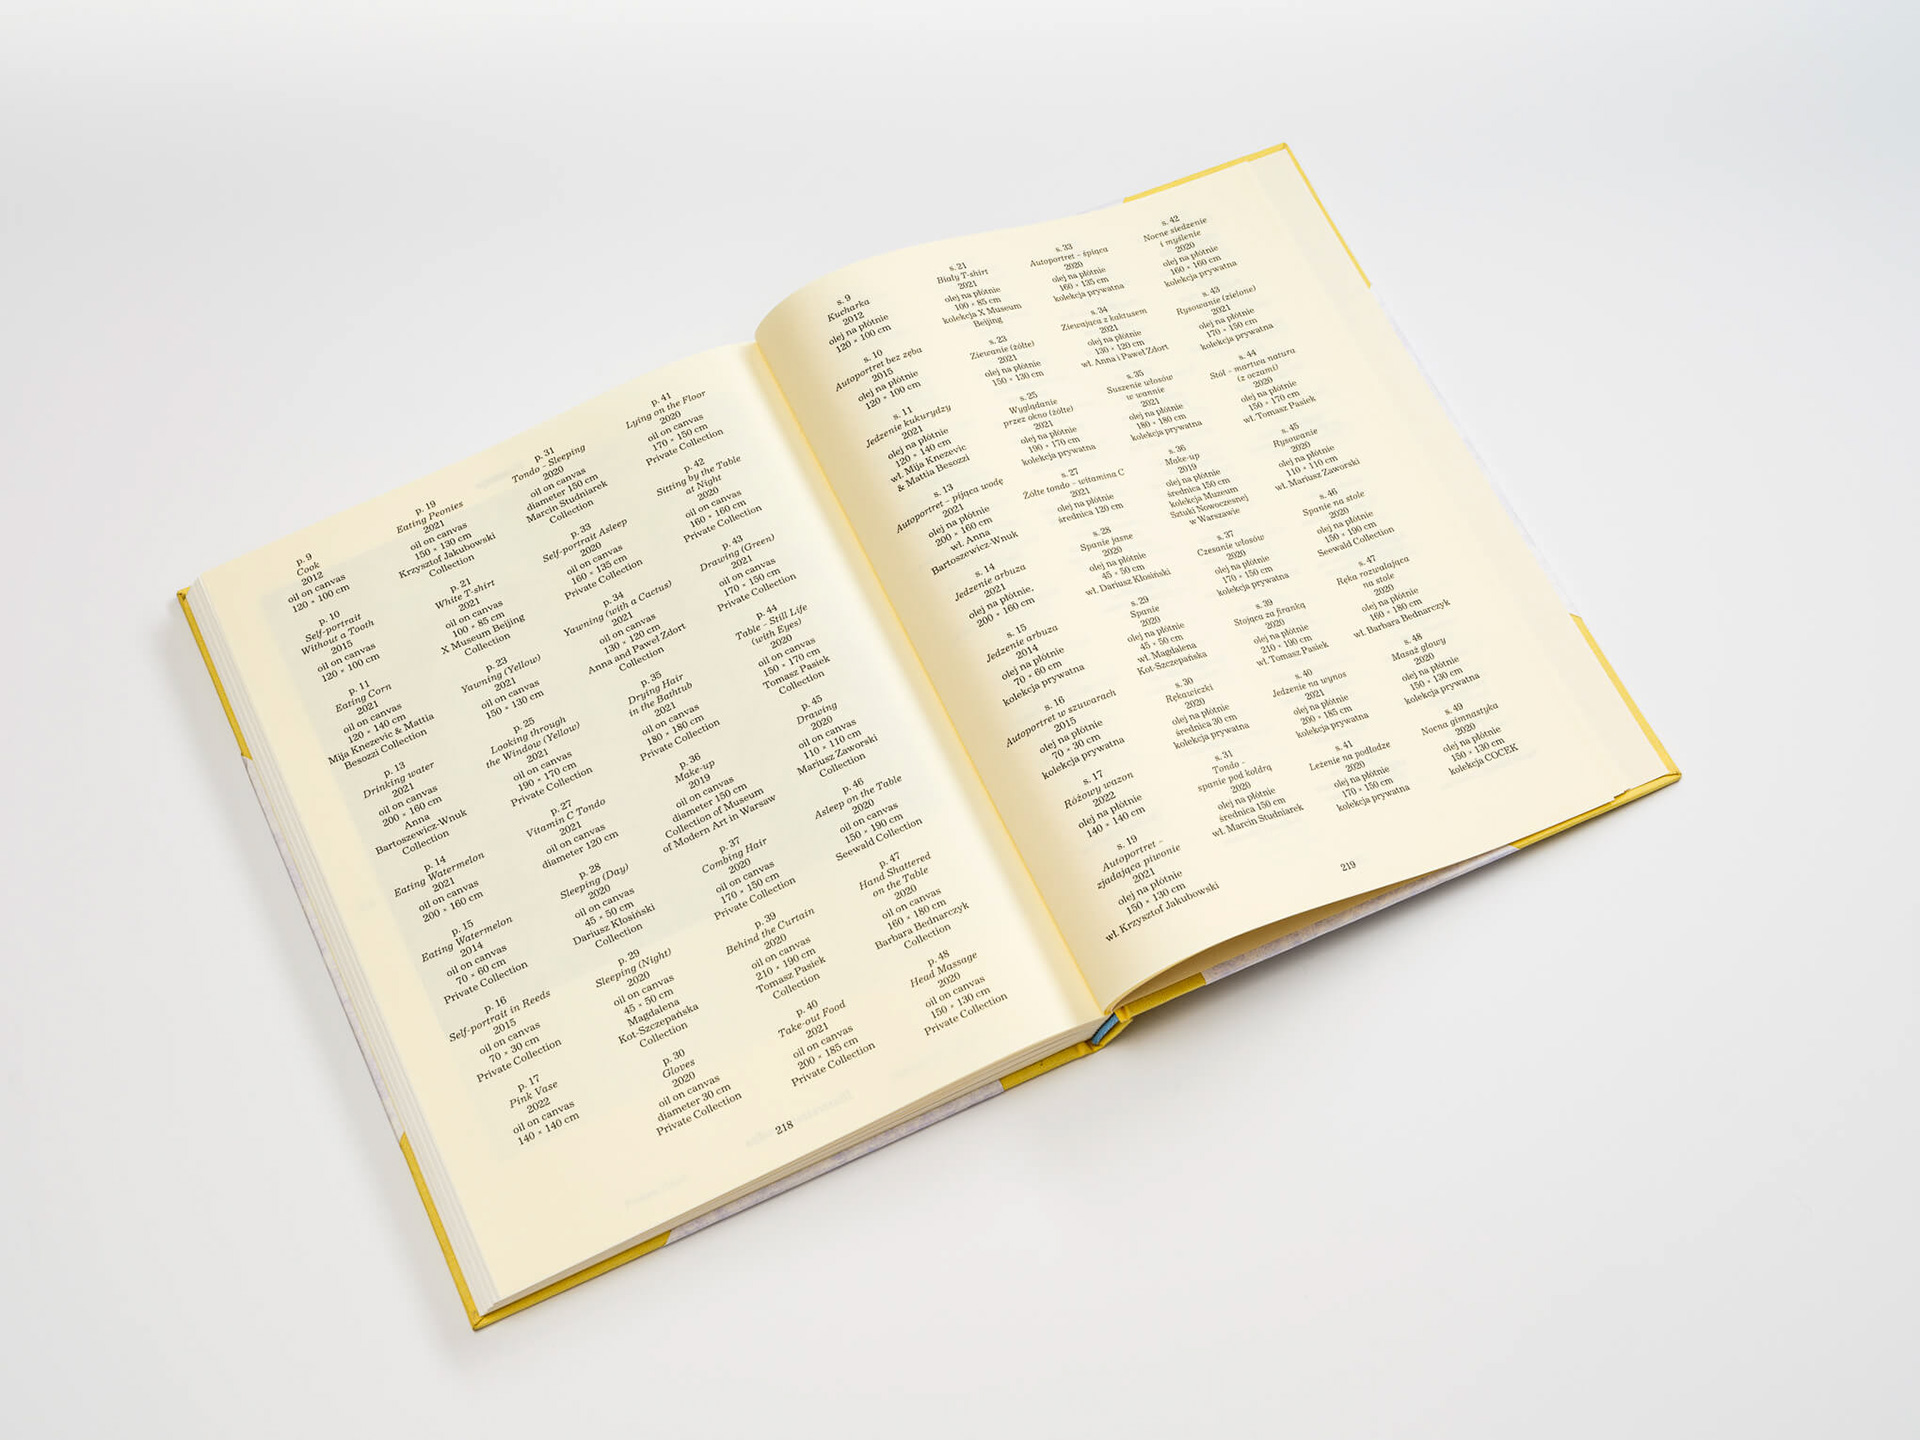 p. 9
Cook
2012
oil on canvas
120 × 100 cm
p. 10
Self-portrait
Without a Tooth
2015
oil on canvas
120 × 100 cm
p. 11
Eating Corn
2021
oil on canvas
120 × 140 cm
Mija Knezevic & Mattia
Besozzi Collection
p. 13
Drinking water
2021
oil on canvas
200 × 160 cm
Anna
Bartoszewicz-Wnuk
Collection
p. 14
Eating Watermelon
2021
oil on canvas
200 × 160 cm
p. 15
Eating Watermelon
2014
oil on canvas
70 × 60 cm
Private Collection
p. 16
Self-portrait in Reeds
2015
oil on canvas
70 × 30 cm
Private Collection
p. 17
Pink Vase
2022
oil on canvas
140 × 140 cm
p. 19
Eating Peonies
2021
oil on canvas
150 × 130 cm
Krzysztof Jakubowski
Collection
p. 21
White T-shirt
2021
oil on canvas
100 × 85 cm
X Museum Beijing
Collection
p. 23
Yawning (Yellow)
2021
oil on canvas
150 × 130 cm
p. 25
Looking through
the Window (Yellow)
2021
oil on canvas
190 × 170 cm
Private Collection
p. 27
Vitamin C Tondo
2021
oil on canvas
diameter 120 cm
p. 28
Sleeping (Day)
2020
oil on canvas
45 × 50 cm
Dariusz Kłosiński
Collection
p. 29
Sleeping (Night)
2020
oil on canvas
45 × 50 cm
Magdalena
Kot-Szczepańska
Collection
p. 30
Gloves
2020
oil on canvas
diameter 30 cm
Private Collection
p. 31
Tondo – Sleeping
2020
oil on canvas
diameter 150 cm
Marcin Studniarek
Collection
p. 33
Self-portrait Asleep
2020
oil on canvas
160 × 135 cm
Private Collection
p. 34
Yawning (with a Cactus)
2021
oil on canvas
130 × 120 cm
Anna and Paweł Zdort
Collection
p. 35
Drying Hair
in the Bathtub
2021
oil on canvas
180 × 180 cm
Private Collection
p. 36
Make-up
2019
oil on canvas
diameter 150 cm
Collection of Museum
of Modern Art in Warsaw
p. 37
Combing Hair
2020
oil on canvas
170 × 150 cm
Private Collection
p. 39
Behind the Curtain
2020
oil on canvas
210 × 190 cm
Tomasz Pasiek
Collection
p. 40
Take-out Food
2021
oil on canvas
200 × 185 cm
Private Collection
p. 41
Lying on the Floor
2020
oil on canvas
170 × 150 cm
Private Collection
p. 42
Sitting by the Table
at Night
2020
oil on canvas
160 × 160 cm
Private Collection
p. 43
Drawing (Green)
2021
oil on canvas
170 × 150 cm
Private Collection
p. 44
Table – Still Life
(with Eyes)
2020
oil on canvas
150 × 170 cm
Tomasz Pasiek
Collection
p. 45
Drawing
2020
oil on canvas
110 × 110 cm
Mariusz Zaworski
Collection
p. 46
Asleep on the Table
2020
oil on canvas
150 × 190 cm
Seewald Collection
p. 47
Hand Shattered
on the Table
2020
oil on canvas
160 × 180 cm
Barbara Bednarczyk
Collection
p. 48
Head Massage
2020
oil on canvas
150 × 130 cm
Private Collection
218
s. 9
Kucharka
2012
olej na płótnie
120 × 100 cm
s. 10
Autoportret bez zęba
2015
olej na płótnie
120 × 100 cm
s. 11
Jedzenie kukurydzy
2021
olej na płótnie
120 × 140 cm
wł. Mija Knezevic
& Mattia Besozzi
s. 13
Autoportret – pijąca wodę
2021
olej na płótnie
200 × 160 cm
wł. Anna
Bartoszewicz-Wnuk
s. 14
Jedzenie arbuza
2021
olej na płótnie,
200 × 160 cm
s. 15
Jedzenie arbuza
2014
olej na płótnie
70 × 60 cm
kolekcja prywatna
s. 16
Autoportret w szuwarach
2015
olej na płótnie
70 × 30 cm
kolekcja prywatna
s. 17
Różowy wazon
2022
olej na płótnie
140 × 140 cm
s. 19
Autoportret –
zjadająca piwonie
2021
olej na płótnie
150 × 130 cm
wł. Krzysztof Jakubowski
s. 21
Biały T-shirt
2021
olej na płótnie
100 × 85 cm
kolekcja X Museum
Beijing
s. 23
Ziewanie (żółte)
2021
olej na płótnie
150 × 130 cm
s. 25
Wyglądanie
przez okno (żółte)
2021
olej na płótnie
190 × 170 cm
kolekcja prywatna
s. 27
Żółte tondo – witamina C
2021
olej na płótnie
średnica 120 cm
s. 28
Spanie jasne
2020
olej na płótnie
45 × 50 cm
wł. Dariusz Kłosiński
s. 29
Spanie
2020
olej na płótnie
45 × 50 cm
wł. Magdalena
Kot-Szczepańska
s. 30
Rękawiczki
2020
olej na płótnie
średnica 30 cm
kolekcja prywatna
s. 31
Tondo –
spanie pod kołdrą
2020
olej na płótnie
średnica 150 cm
wł. Marcin Studniarek
s. 33
Autoportret – śpiąca
2020
olej na płótnie
160 × 135 cm
kolekcja prywatna
s. 34
Ziewająca z kaktusem
2021
olej na płótnie
130 × 120 cm
wł. Anna i Paweł Zdort
s. 35
Suszenie włosów
w wannie
2021
olej na płótnie
180 × 180 cm
kolekcja prywatna
s. 36
Make-up
2019
olej na płótnie
średnica 150 cm
kolekcja Muzeum
Sztuki Nowoczesnej
w Warszawie
s. 37
Czesanie włosów
2020
olej na płótnie
170 × 150 cm
kolekcja prywatna
s. 39
Stojąca za firanką
2020
olej na płótnie
210 × 190 cm
wł. Tomasz Pasiek
s. 40
Jedzenie na wynos
2021
olej na płótnie
200 × 185 cm
kolekcja prywatna
s. 41
Leżenie na podłodze
2020
olej na płótnie
170 × 150 cm
kolekcja prywatna
s. 42
Nocne siedzenie
i myślenie
2020
olej na płótnie
160 × 160 cm
kolekcja prywatna
s. 43
Rysowanie (zielone)
2021
olej na płótnie
170 × 150 cm
kolekcja prywatna
s. 44
Stół – martwa natura
(z oczami)
2020
olej na płótnie
150 × 170 cm
wł. Tomasz Pasiek
s. 45
Rysowanie
2020
olej na płótnie
110 × 110 cm
wł. Mariusz Zaworski
s. 46
Spanie na stole
2020
olej na płótnie
150 × 190 cm
Seewald Collection
s. 47
Ręka rozwalająca
na stole
2020
olej na płótnie
160 × 180 cm
wł. Barbara Bednarczyk
s. 48
Masaż głowy
2020
olej na płótnie
150 × 130 cm
kolekcja prywatna
s. 49
Nocna gimnastyka
2020
olej na płótnie
150 × 130 cm
kolekcja COCEK
219